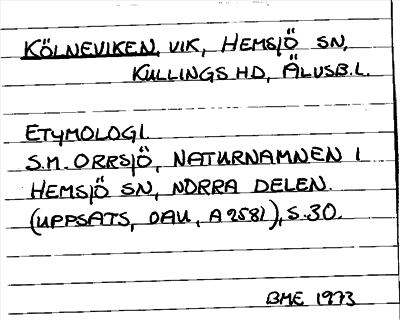 KÖLNEVIKEN, VIK, HEMSJÖ SN,
KULLINGS HD, ÄLVSB. L.
ETYMOLOGI.
S.M. ORRSJÖ, NATURNAMNEN I
HEMSJÖ SN, NORRA DELEN.
(UPPSATS, OAU, A 2581), S. 30.
BME 1973